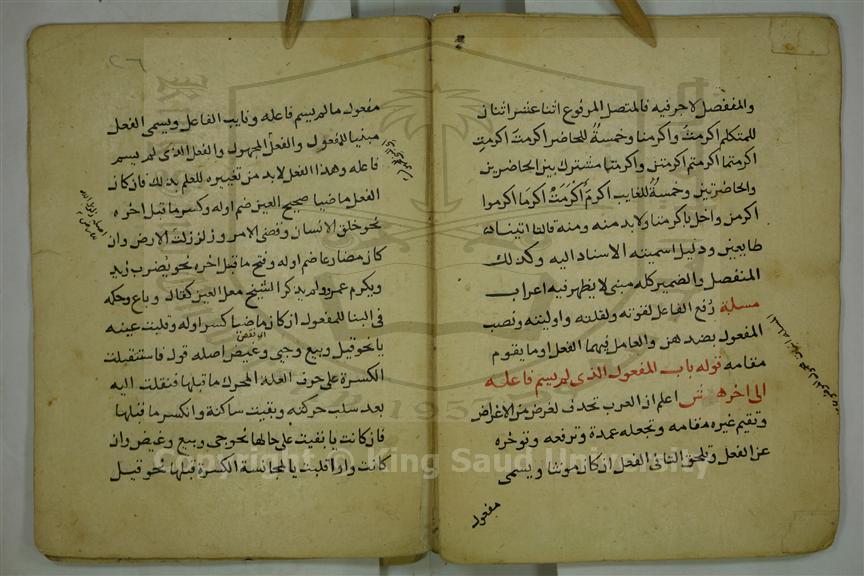 والمنفصل لا حرفيه فالمتصل المرفوع اثنا عشر اثنان
للمتكلم اكرمتُ واكرمنا وخمسةٌ للحاضر اكرمتَ اكرمتِ
اكرمتما اكرمتم اكرمتن واكرمتما مشترك بين الحاضرين
والحاضرتين وخمسةٌ للغايب اكرمَ أكرَمَتْ اكرمَا اكرموا
اكرمن واخل باكرمنا ولابد منه ومنه قالتا اتينا
طايعين ودليل اسميته الاسناد اليه وكذلك
المنفصل والضمير كله مبنى لا يظهر فيه اعراب
مسلة رُفع الفاعل لقوته ولقلته واوليته ونصب
المفعول بضد هن والعامل فيهما الفعل او ما يقوم
مقامه قوله باب المفعول الذى لم يسم فاعله
الى اخره ش اعلم ان العرب تحذف لغرض من الاغراض
وتقيم غيره مقامه وتجعله عمدة وترفعه وتوخره
عن الفعل وتلحق التا فى الفعل ان كان مونثا ويسمى
مفعول
٢٦
مفعول ما لم يسم فاعله ونايب الفاعل ويسمى الفعل
مبنيا للمفعول والفعل المجهول والفعل الذى لم يسم
فاعله وهذا الفعل لا بد من تغييره للعلم بذلك فان كان
الفعل ماضيا صحيح العين ضم اوله وكسر ما قبل اخره
نحو خلق الانسان وقضى الامر وزلزلت الارض وان
كان مضارعا ضم اوله وفتح ما قبل اخره نحو يضرب زيد
ويكرم عمرو ولم يذكر الشيخ معل العين كقال وباع وحكمه
فى البنا للمفعول ان كان ماضيا كسر اوله وقلبت عينه
يا نحو قيل وبيع وجيى وغيض اصله قول فاستثقلت
اى نقص
الكسرة على حرف العلة المحرك ما قبلها فنقلت اليه
بعد سلب حركته وبقيت ساكنة وانكسر ما قبلها
فان كانت يا بقيت على حالها نحو جى وبيع وغيض وان
كانت واوا قلبت يا لمجانسة الكسرة قبلها نحو قيل
Copyright © King Saud University
1957